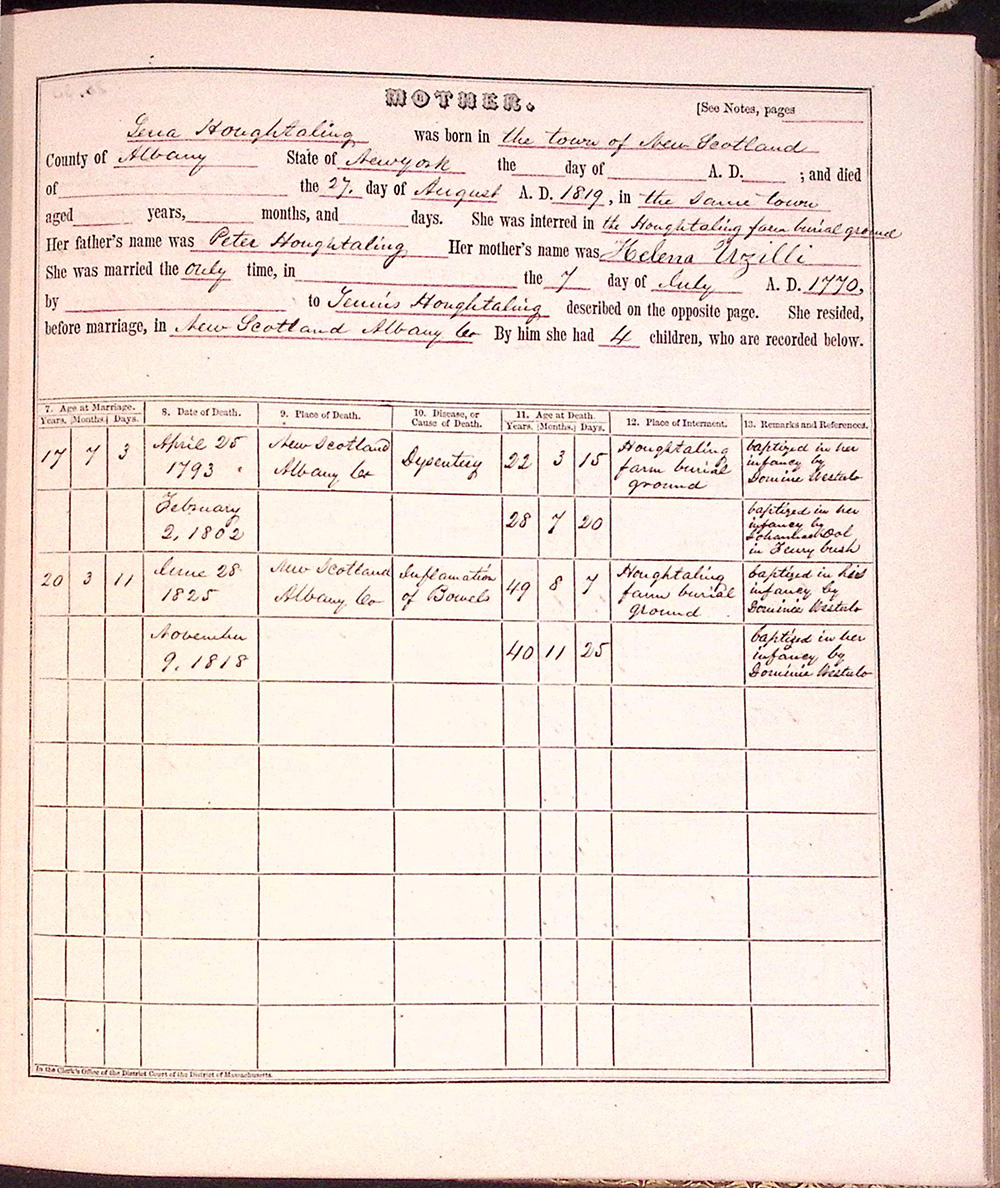 MOTHER.
[See Notes, pages
Lena Houghtaling was born in the town of New Scotland
County of Albany State of Newyork the day of A. D. ; and died
of the 27. day of August A. D. 1819, in the Same town
aged years, months, and days. She was interred in the Houghtaling farm burial ground
Her father's name was Peter Houghtaling Her mother's name was Helena Uzilli
She was married the only time, in the 7 day of July A. D. 1770,
by to Teunis Houghtaling described on the opposite page. She resided,
before marriage, in New Scotland Albany Co By him she had 4 children, who are recorded below.
7. Age at Marriage. 8. Date of Death. 9. Place of Death. 10. Disease, or Cause of Death. 11. Age at Death. 12. Place of Interment. 13. Remarks and References.
Years. Months. Days. Years. Months. Days.
17 7 3 April 25 1793 New Scotland Albany Co Dysentery 22 3 15 Houghtaling farm burial ground baptized in her infancy by Domine Westulo
February 2, 1802 28 7 20 baptized in her infancy by in Fenry bush
20 3 11 June 28 1825 New Scotland Albany Co Inflamation of Bowels 49 8 7 Houghtaling farm burial ground baptized in his infancy by Dominie Westulo
November 9, 1818 40 11 25 baptized in her infancy by Dominie Westulo
In the Clerk's Office of the District Court of the District of Massachusetts.